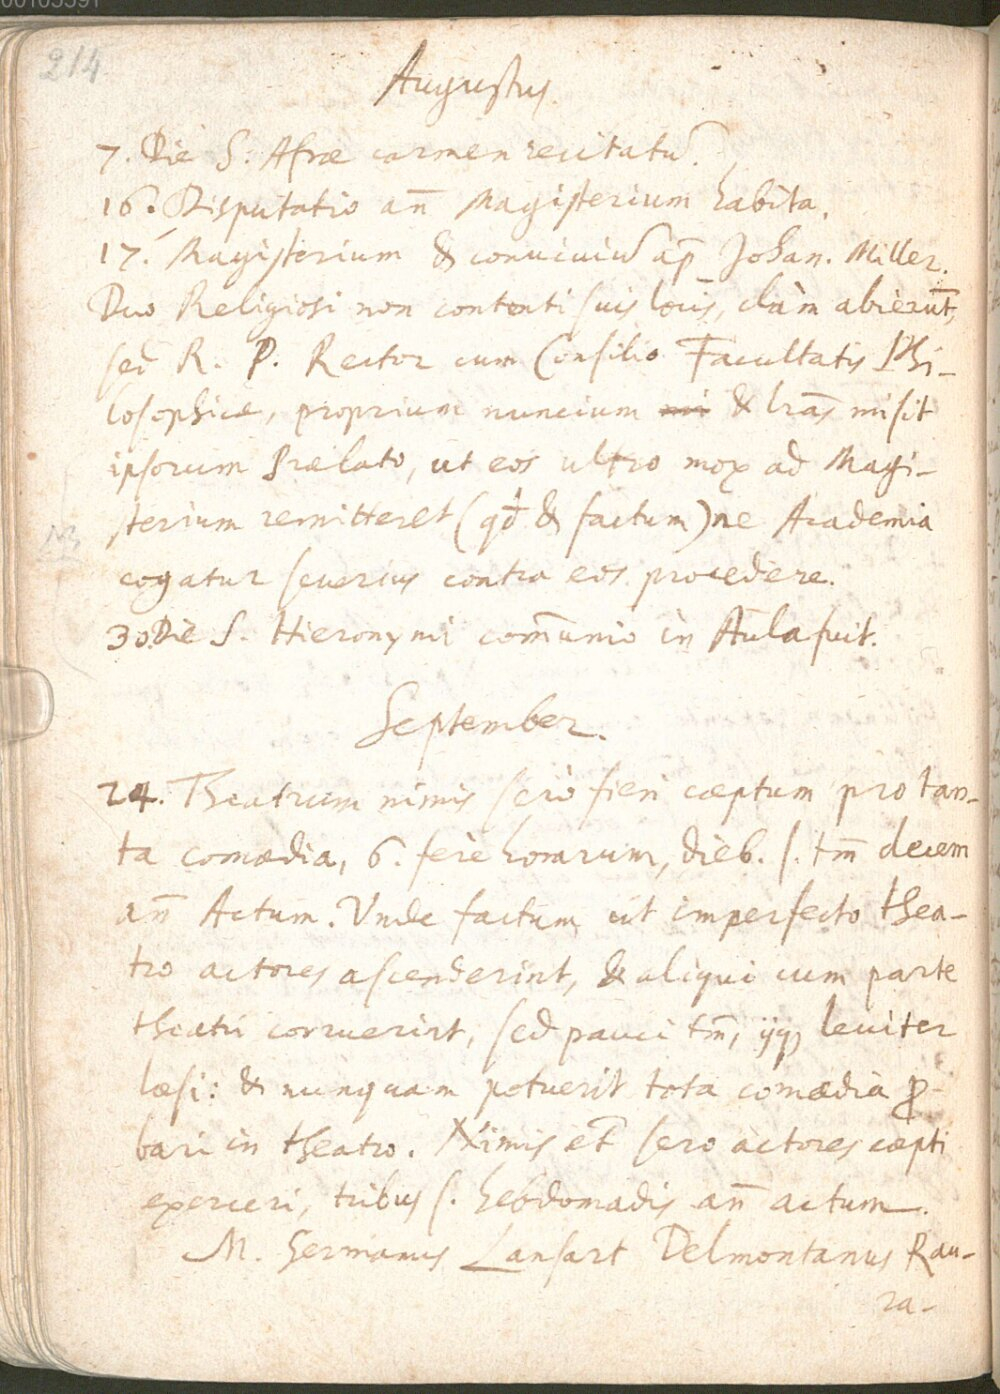 214
Augustus.
7. Die S. Afræ carmen recitatu̅.
16. Disputatio an̅ Magisterium habita.
17. Magisterium & conuiuiu̅ ap̅ Johan. Miller.
Duo Religiosi non contenti suis locis, clàm abieru̅t,
sed R. P. Rector cum Consilio Facultatis Phi-
losophicæ, proprium nuncium & l̅ras misit
ipsorum Prælato, ut eos ultro mox ad Magi-
sterium remitteret (qd̅ & factum) ne Academia
NB
cogatur seuerius contra eos procedere.
30. Die S. Hieronymi com̅unio in Aula fuit.
September.
24. Theatrum nimis serò fieri cæptum pro tan-
ta comœdia, 6. ferè horarum, dieb. s. tm̅ decem
an̅ Actum. Vnde factum ut imperfecto thea-
tro actores ascenderint, & aliqui cum parte
theatri corruerint, sed pauci tm̅, ijq3 leuiter
læsi: & nunquam potuerit tota comœdia ꝓ-
bari in theatro. Nimis et̅ sero actores cæpti
exerceri, tribus s. hebdomadis an̅ actum.
M. Germanus Lansart Delmontanus Rau-
ra-